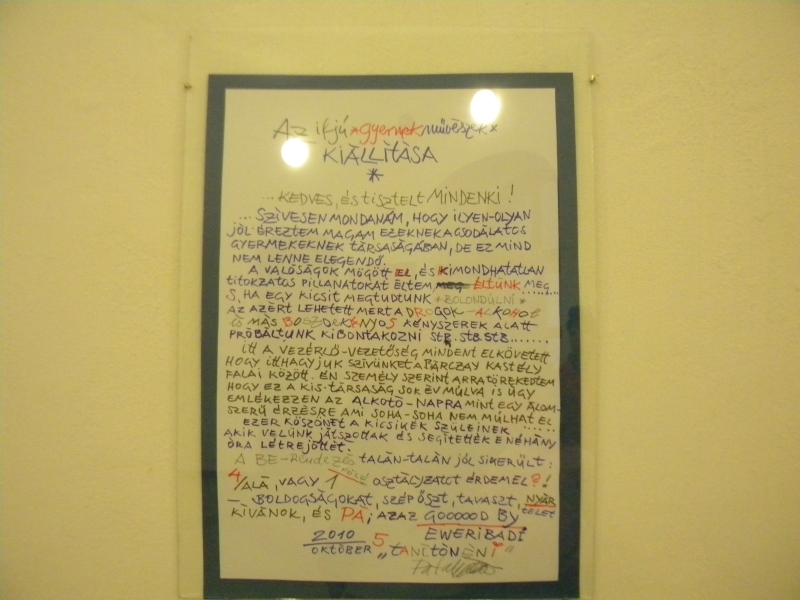 Az ifjú *gyermekművészek*
KIÁLLÍTÁSA
*
... KEDVES, ÉS tisztelt MINDENKI!
... SZÍVESEN MONDANÁM, HOGY ILYEN-OLYAN
JÓL ÉREZTEM MAGAM EZEKNEK A CSODÁLATOS
GYERMEKEKNEK TÁRSASÁGÁBAN, DE EZ MIND
NEM LENNE ELEGENDŐ.
A VALÓSÁGOK MÖGÖTT EL, ÉS KIMONDHATATLAN
titokzatos PILLANATOKAT ÉLTEM MEG ÉLTÜNK MEG
S, HA EGY KICSIT MEGTUDTUNK *BOLONDULNI*
AZ AZÉRT LEHETETT MERT A DROGOK-ALKOHOL
IS MÁS KÉNYSZEREK ALATT
PRÓBÁLTUNK KIBONTAKOZNI STB. STB. STB.......
ITT A VEZÉRLŐ-VEZETŐSÉG MINDENT ELKÖVETETT
HOGY ITTHAGYJUK SZÍVÜNKET A PÁRCZAY KASTÉLY
FALAI KÖZÖTT. ÉN SZEMÉLY SZERINT ARRA TÖREKEDTEM
HOGY EZ A KIS-TÁRSASÁG SOK ÉV MÚLVA IS ÚGY
EMLÉKEZZEN AZ ALKOTÓ-NAPRA MINT EGY ÁLOM-
SZERŰ ÉRZÉSRE AMI SOHA-SOHA NEM MÚLHAT EL
EZER KÖSZÖNET A KICSINEK SZÜLEINEK .....
AKIK VELÜNK JÁTSZOTTAK ÉS SEGÍTETTÉK E NÉHÁNY
ÓRA LÉTREJÖTTÉT.
A BE-RENDEZÉS TALÁN-TALÁN JÓL SIKERÜLT:
4/ALÁ, VAGY 1 FÖLÉ OSZTÁLYZATOT ÉRDEMEL?!
— BOLDOGSÁGOKAT, SZÉP ŐSZT, TAVASZT, NYÁR
TELET
KÍVÁNOK, ÉS PÁ; AZAZ GOOOOOD BY
2010 EWERIBADI
OKTÓBER 5 „TANÍTÓNÉNI"